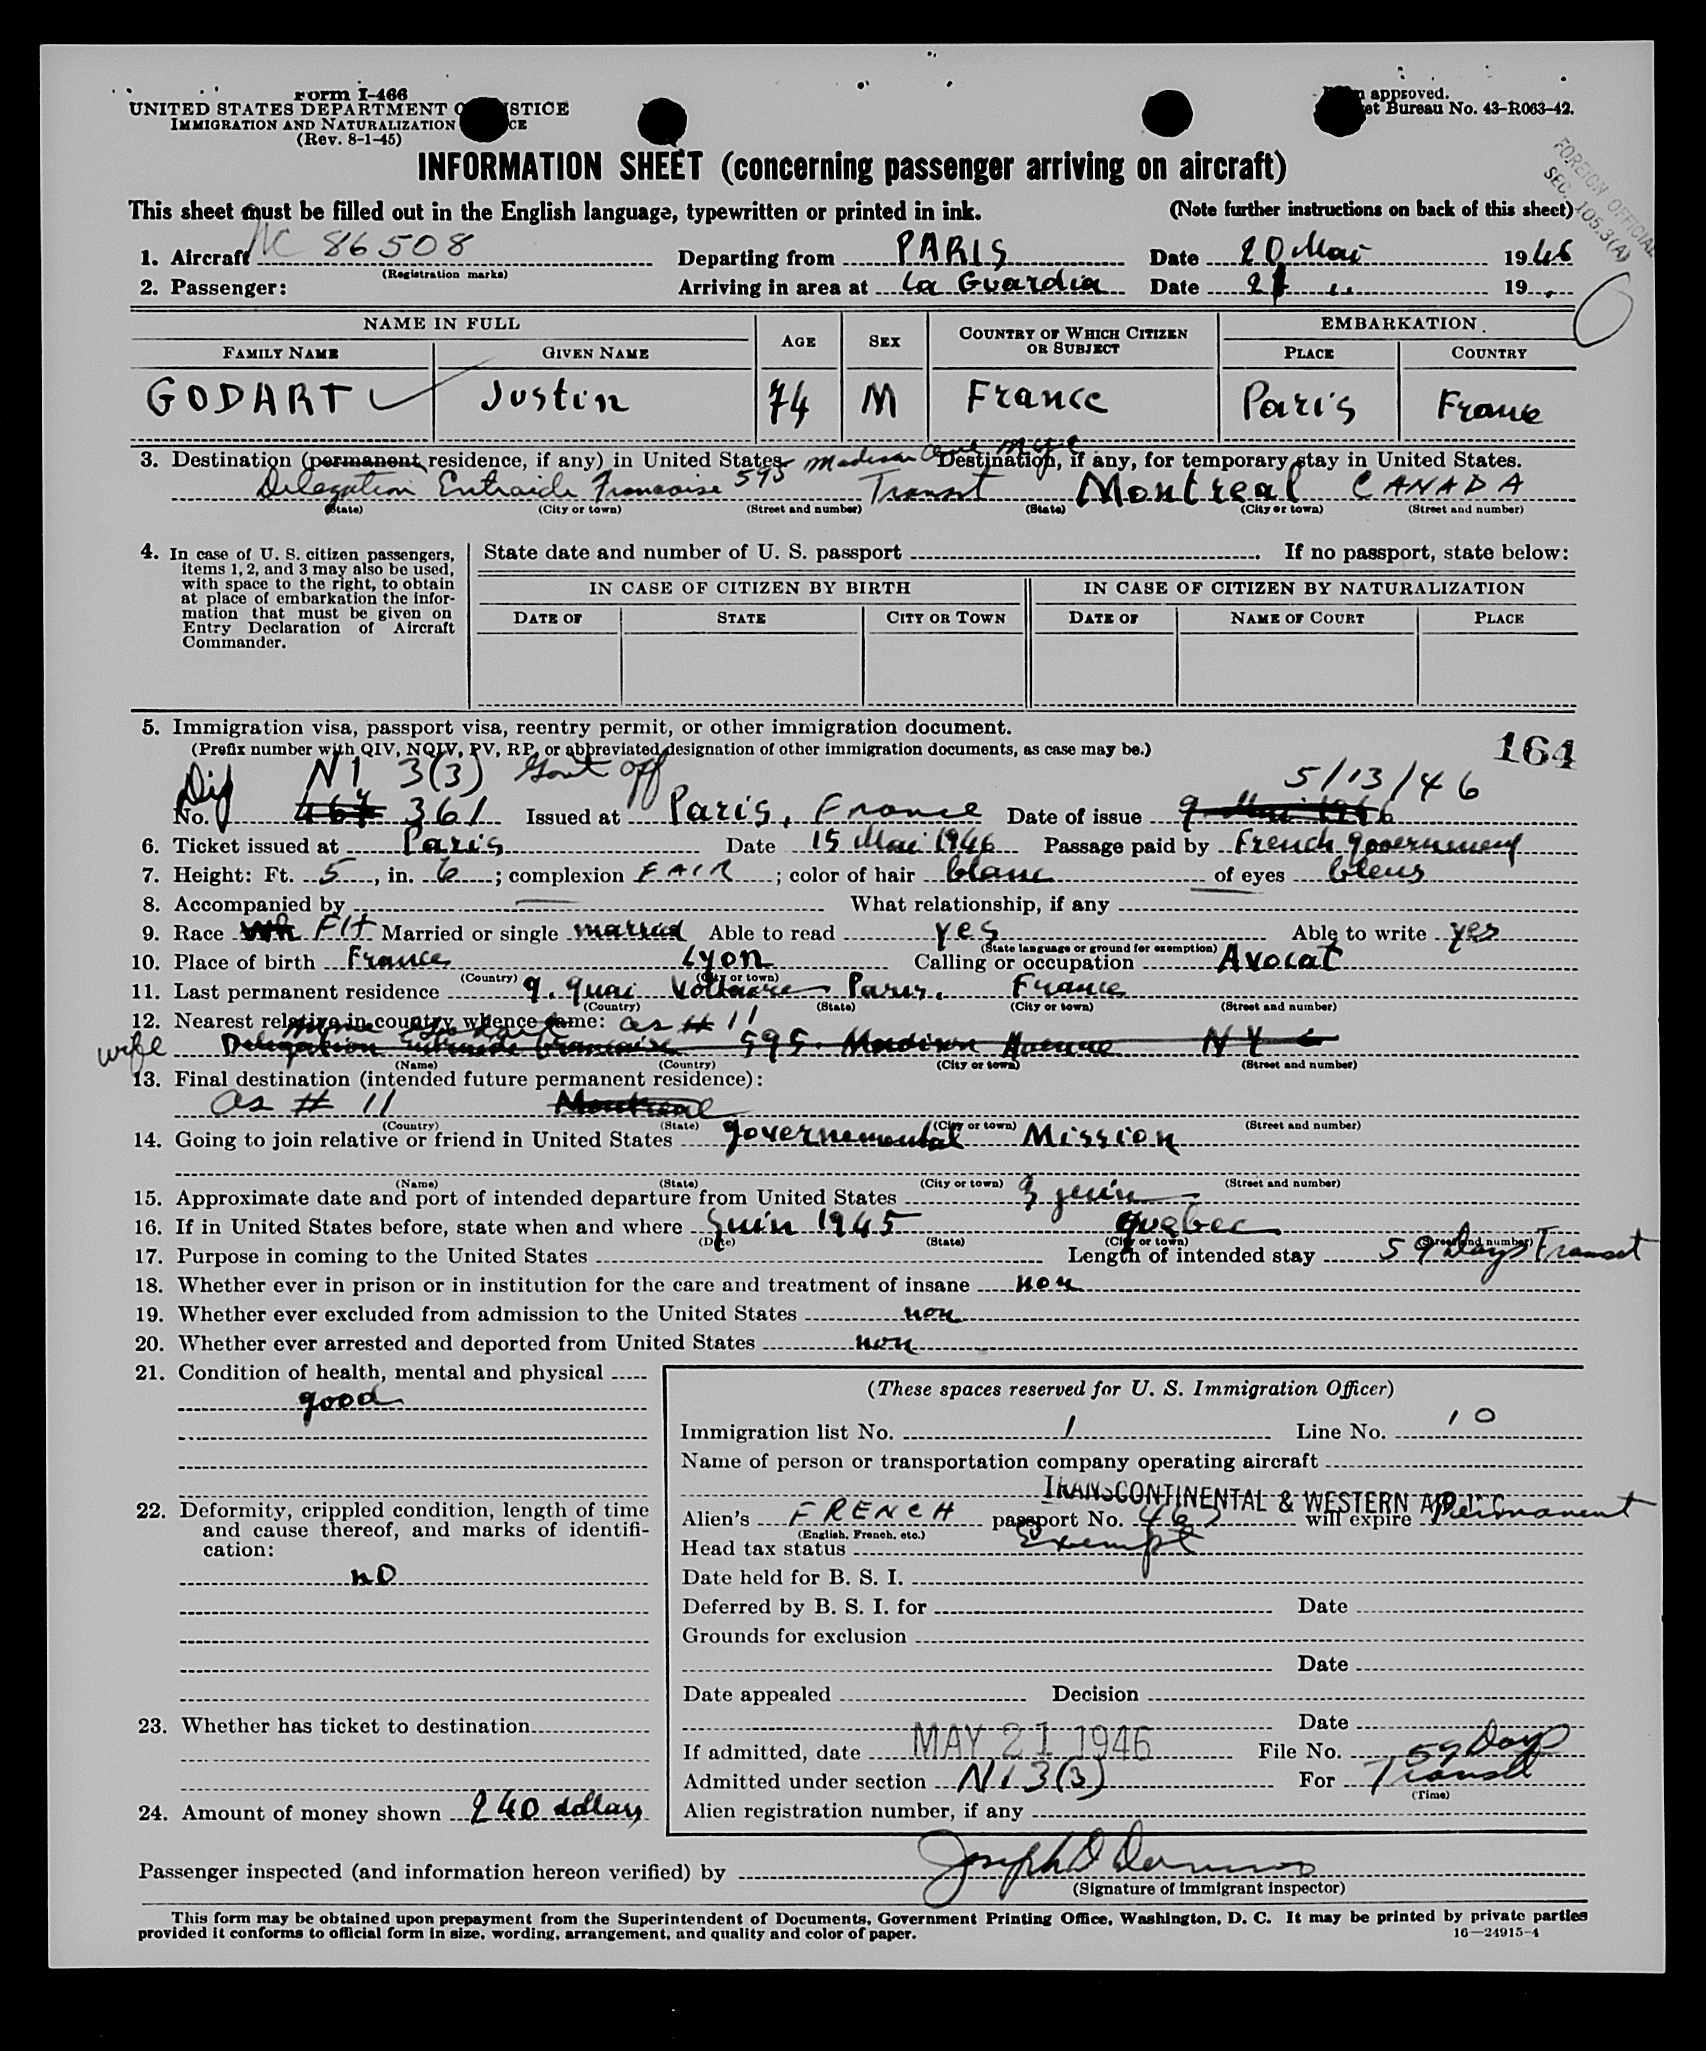 Form I-466
UNITED STATES DEPARTMENT OF JUSTICE
IMMIGRATION AND NATURALIZATION SERVICE
(Rev. 8-1-45)
Form approved.
Budget Bureau No. 43-R063-42.
FOREIGN OFFICIAL
SEC. 105.3(A)
INFORMATION SHEET (concerning passenger arriving on aircraft)
This sheet must be filled out in the English language, typewritten or printed in ink. (Note further instructions on back of this sheet)
1. Aircraft NC 86508 Departing from PARIS Date 20 Mai 1946
(Registration marks)
2. Passenger: Arriving in area at La Guardia Date 21 " 19 "
NAME IN FULL AGE SEX COUNTRY OF WHICH CITIZEN OR SUBJECT EMBARKATION
FAMILY NAME GIVEN NAME PLACE COUNTRY
GODART Justin 74 M France Paris France
3. Destination (permanent residence, if any) in United States. Destination, if any, for temporary stay in United States.
Delegation Entraide Francaise 595 Madison Ave NYC Transit Montreal CANADA
(State) (City or town) (Street and number) (State) (City or town) (Street and number)
4. In case of U. S. citizen passengers, items 1, 2, and 3 may also be used, with space to the right, to obtain at place of embarkation the information that must be given on Entry Declaration of Aircraft Commander.
State date and number of U. S. passport If no passport, state below:
IN CASE OF CITIZEN BY BIRTH IN CASE OF CITIZEN BY NATURALIZATION
DATE OF STATE CITY OR TOWN DATE OF NAME OF COURT PLACE
5. Immigration visa, passport visa, reentry permit, or other immigration document.
(Prefix number with QIV, NQIV, PV, RP, or abbreviated designation of other immigration documents, as case may be.)
164
Dip N1 3(3) Govt off 5/13/46
No. 467 361 Issued at Paris, France Date of issue 9 Mai 1946
6. Ticket issued at Paris Date 15 Mai 1946 Passage paid by French government
7. Height: Ft. 5, in. 6; complexion FAIR; color of hair blanc of eyes bleus
8. Accompanied by — What relationship, if any
9. Race Wh FH Married or single married Able to read yes Able to write yes
(State language or ground for exemption)
10. Place of birth France Lyon Calling or occupation Avocat
(Country) (City or town)
11. Last permanent residence 9. quai Voltaire Paris. France
(Country) (State) (City or town) (Street and number)
12. Nearest relative in country whence came: as # 11
wife Delegation Entraide Francaise 595. Madison Avenue NYC
(Name) (Country) (City or town) (Street and number)
13. Final destination (intended future permanent residence):
as # 11 Montreal
(Country) (State) (City or town) (Street and number)
14. Going to join relative or friend in United States governemental Mission
(Name) (State) (City or town) (Street and number)
15. Approximate date and port of intended departure from United States 3 juin
16. If in United States before, state when and where Juin 1945 Quebec
(Date) (State) (City or town) (Street and number)
17. Purpose in coming to the United States Length of intended stay 59 Days Transit
18. Whether ever in prison or in institution for the care and treatment of insane non
19. Whether ever excluded from admission to the United States non
20. Whether ever arrested and deported from United States non
21. Condition of health, mental and physical
good
22. Deformity, crippled condition, length of time and cause thereof, and marks of identification:
no
23. Whether has ticket to destination
24. Amount of money shown 240 dollars
(These spaces reserved for U. S. Immigration Officer)
Immigration list No. 1 Line No. 10
Name of person or transportation company operating aircraft
TRANSCONTINENTAL & WESTERN AIR INC
Alien's FRENCH passport No. 467 will expire Permanent
(English, French, etc.)
Head tax status Exempt
Date held for B. S. I.
Deferred by B. S. I. for Date
Grounds for exclusion
Date
Date appealed Decision
Date
If admitted, date MAY 21 1946 File No. 59 Days
Admitted under section N1 3(3) For Transit
(Time)
Alien registration number, if any
Passenger inspected (and information hereon verified) by
(Signature of immigrant inspector)
This form may be obtained upon prepayment from the Superintendent of Documents, Government Printing Office, Washington, D. C. It may be printed by private parties
provided it conforms to official form in size, wording, arrangement, and quality and color of paper. 16—24915-4